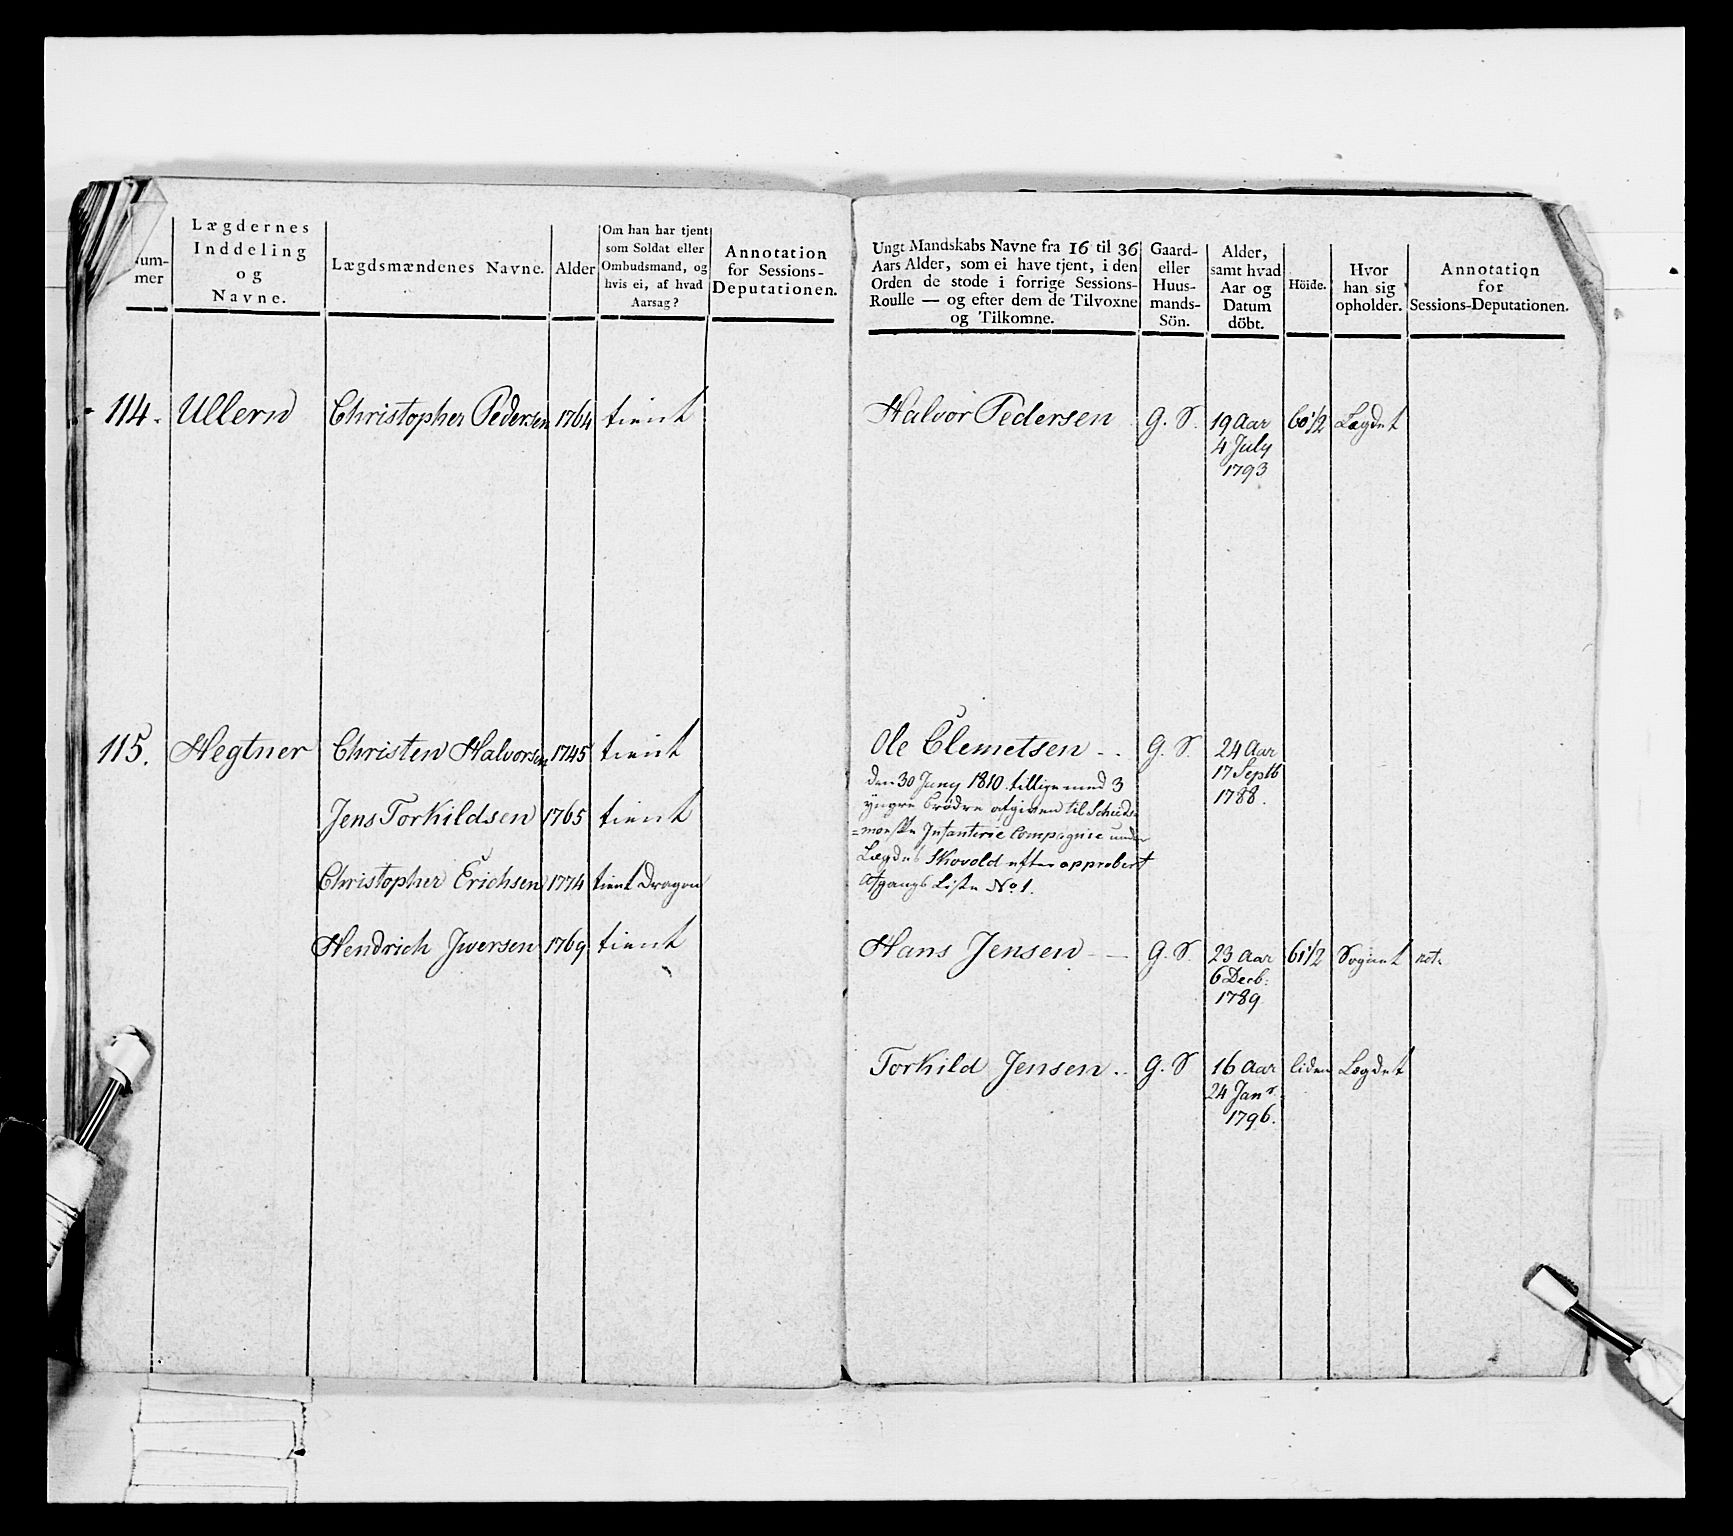 um-
mer
Lægdernes
Inddeling
og
Navne.
Lægdsmændenes Navne.
Alder
Om han har tjent
som Soldat eller
Ombudsmand, og
hvis ei, af hvad
Aarsag?
Annotation
for Sessions-
Deputationen.
114. Ullern Christopher Pedersen 1764 tient
115. Hegtner Christen Halvorsen 1745 tient
Jens Torkildsen 1765 tient
Christopher Erichsen 1774 tient Dragon
Hendrich Iwersen 1769 tient
Ungt Mandskabs Navne fra 16 til 36
Aars Alder, som ei have tjent, i den
Orden de stode i forrige Sessions-
Roulle — og efter dem de Tilvoxne
og Tilkomne.
Gaard-
eller
Huus-
mands-
Sön.
Alder,
samt hvad
Aar og
Datum
döbt.
Höide.
Hvor
han sig
opholder.
Annotation
for
Sessions-Deputationen.
Halvor Pedersen G. S. 19 Aar 60 1/2 Lægdet
4 July
1793
Ole Clemetsen G. S. 24 Aar
17 Septb
1788.
den 30 Juny 1810 tillige med 3
yngre brødre afgiven til Schieds-
=moeske Infanterie Compagnie under
Lægdet Skovold efter approbert
Afgangs Liste No 1.
Hans Jensen G. S. 23 Aar 61 1/2 Sognet not.
6 Decb:
1789
Torkild Jensen G. S 16 Aar liden Lægdet
24 Janr.
1796.